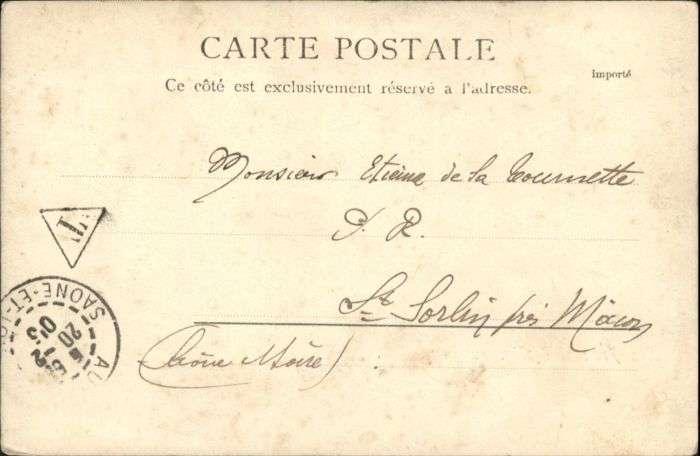 CARTE POSTALE
Importé
Ce côté est exclusivement réservé à l'adresse.
Monsieur Etienne de la Tournette
P. R.
St Sorlin près Mâcon
(Saône & Loire)
T
SAONE-ET-LOIRE
20
05